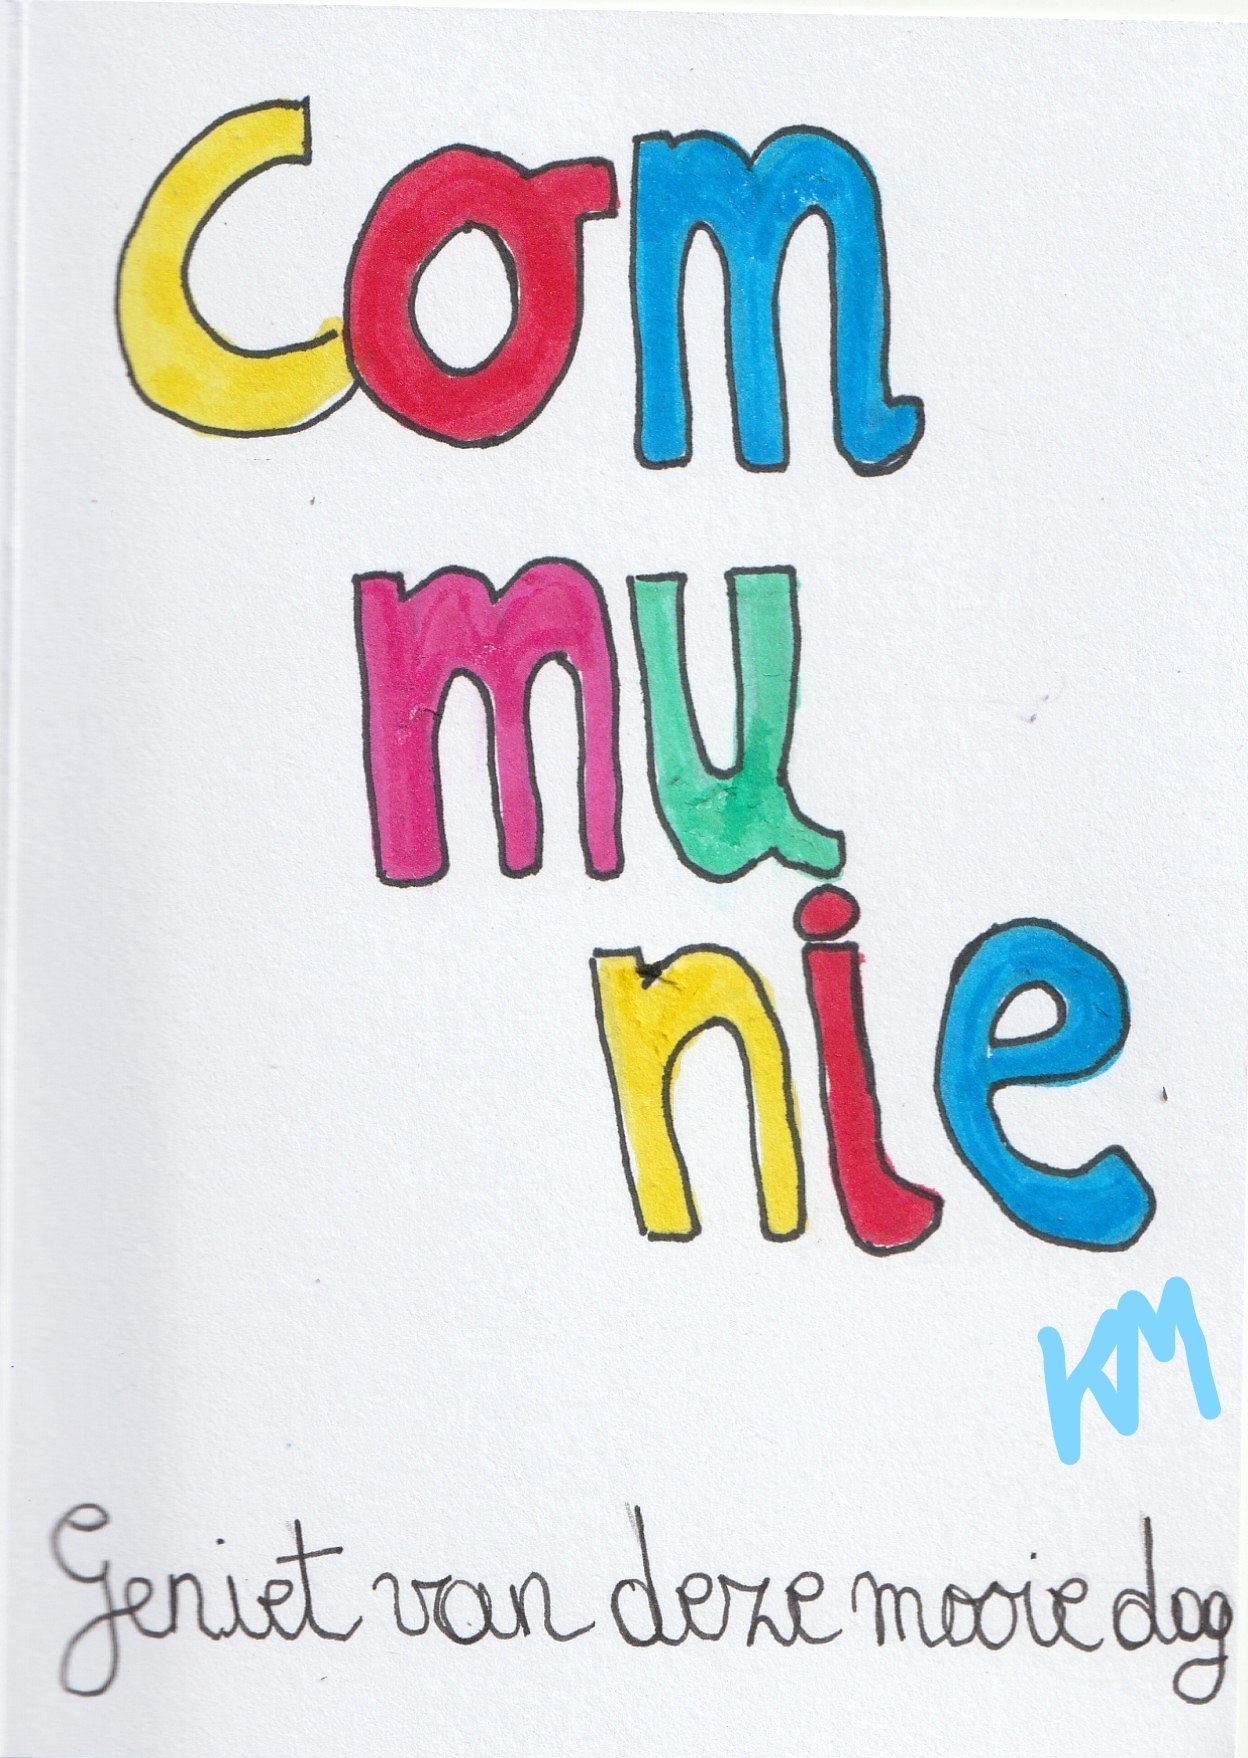 Com
mu
nie
KM
Geniet van deze mooie dag